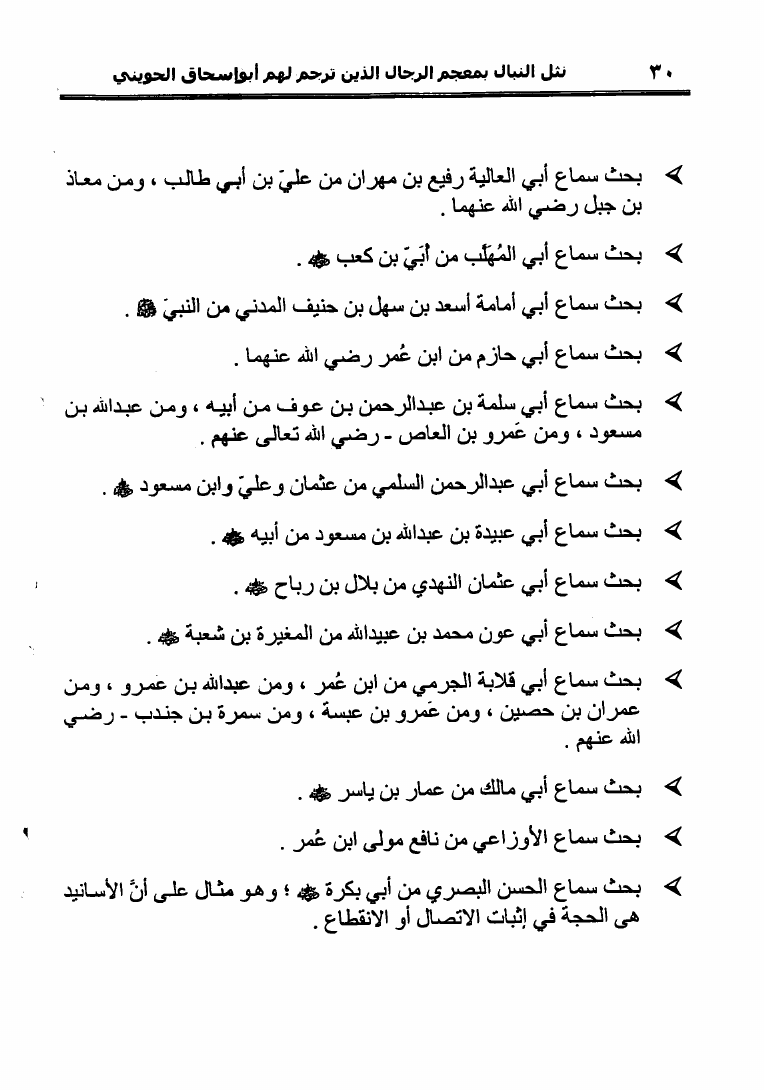 ٣٠ نثل النبال بمعجم الرجال الذين ترجم لهم أبوإسحاق الحويني
بحث سماع أبي العالية رفيع بن مهران من عليّ بن أبي طالب ، ومن معاذ
بن جبل رضي الله عنهما .
بحث سماع أبي المُهَلَّب من أُبَيّ بن كعب ﷺ .
بحث سماع أبي أمامة أسعد بن سهل بن حنيف المدني من النبيّ ﷺ .
بحث سماع أبي حازم من ابن عُمر رضي الله عنهما .
بحث سماع أبي سلمة بن عبدالرحمن بن عوف من أبيه ، ومن عبدالله بن
مسعود ، ومن عَمرو بن العاص - رضي الله تعالى عنهم .
بحث سماع أبي عبدالرحمن السلمي من عثمان وعليّ وابن مسعود .
بحث سماع أبي عبيدة بن عبدالله بن مسعود من أبيه .
بحث سماع أبي عثمان النهدي من بلال بن رباح .
بحث سماع أبي عون محمد بن عبيدالله من المغيرة بن شعبة .
بحث سماع أبي قلابة الجرمي من ابن عُمر ، ومن عبدالله بن عَمرو ، ومن
عمران بن حصين ، ومن عَمرو بن عبسة ، ومن سمرة بن جندب - رضي
الله عنهم .
بحث سماع أبي مالك من عمار بن ياسر .
بحث سماع الأوزاعي من نافع مولى ابن عُمر .
بحث سماع الحسن البصري من أبي بكرة ؛ وهو مثال على أنَّ الأسانيد
هى الحجة في إثبات الاتصال أو الانقطاع .